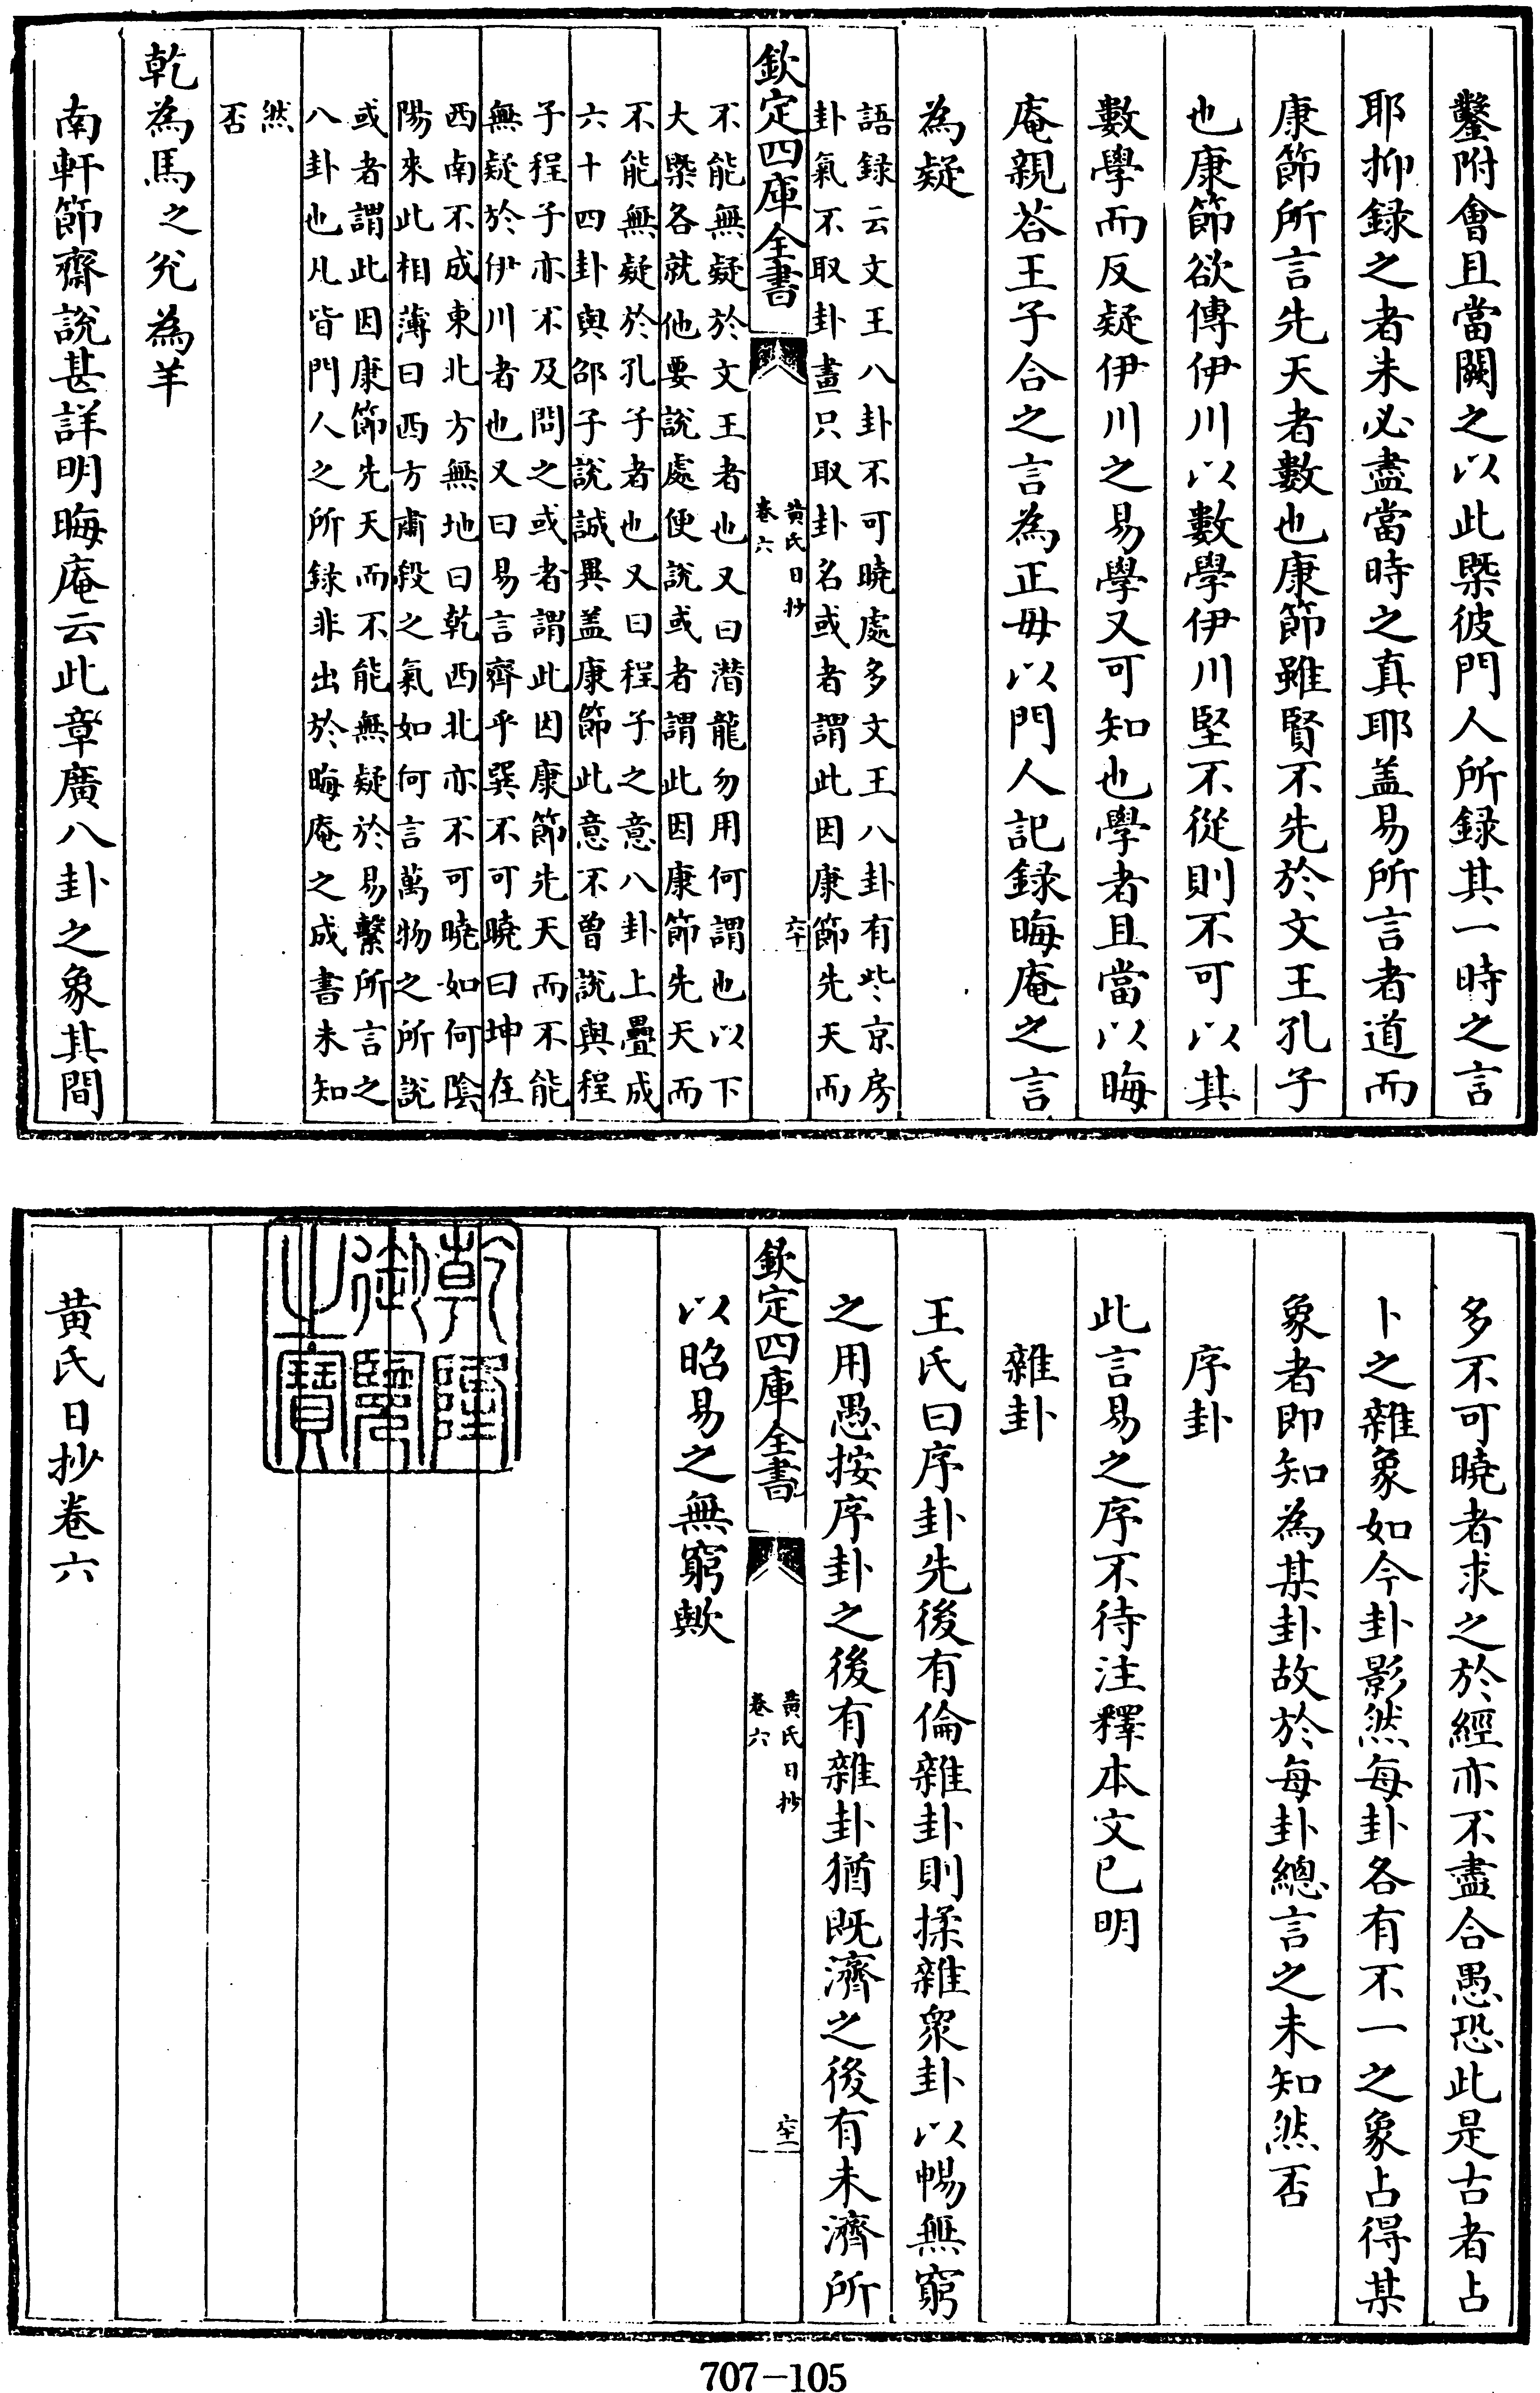 鑿附會且當闕之以此槩彼門人所録其一時之言
耶抑録之者未必盡當時之真耶盖易所言者道而
康節所言先天者數也康節雖賢不先於文王孔子
也康節欲傳伊川以數學伊川堅不從則不可以其
數學而反疑伊川之易學又可知也學者且當以晦
庵親荅王子合之言為正毋以門人記録晦庵之言
為疑
語録云文王八卦不可曉處多文王八卦有些京房
卦氣不取卦畫只取卦名或者謂此因康節先天而
欽定四庫全書
黄氏日抄
卷六
六十
不能無疑於文王者也又曰潛龍勿用何謂也以下
大槩各就他要說處便說或者謂此因康節先天而
不能無疑於孔子者也又曰程子之意八卦上疊成
六十四卦與邵子說誠異盖康節此意不曽說與程
子程子亦不及問之或者謂此因康節先天而不能
無疑於伊川者也又曰易言齊乎巽不可曉曰坤在
西南不成東北方無地曰乾西北亦不可曉如何隂
陽來此相薄曰西方肅殺之氣如何言萬物之所說
或者謂此因康節先天而不能無疑於易繫所言之
八卦也凡皆門人之所録非出於晦庵之成書未知
然
否
乾為馬之兊為羊
南軒節齋說甚詳明晦庵云此章廣八卦之象其間
多不可曉者求之於經亦不盡合愚恐此是古者占
卜之雜象如今卦影然每卦各有不一之象占得某
象者即知為某卦故於每卦總言之未知然否
序卦
此言易之序不待注釋本文已明
雜卦
王氏曰序卦先後有倫雜卦則揉雜衆卦以暢無窮
之用愚按序卦之後有雜卦猶既濟之後有未濟所
欽定四庫全書
黄氏日抄
卷六
六十一
以昭易之無窮歟
乾隆
御覽
之寶
黄氏日抄卷六
707-105